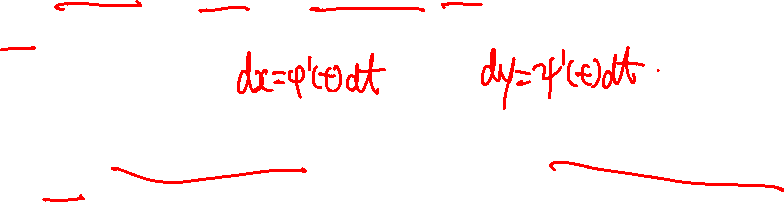 dx=φ'(t)dt dy=ψ'(t)dt.